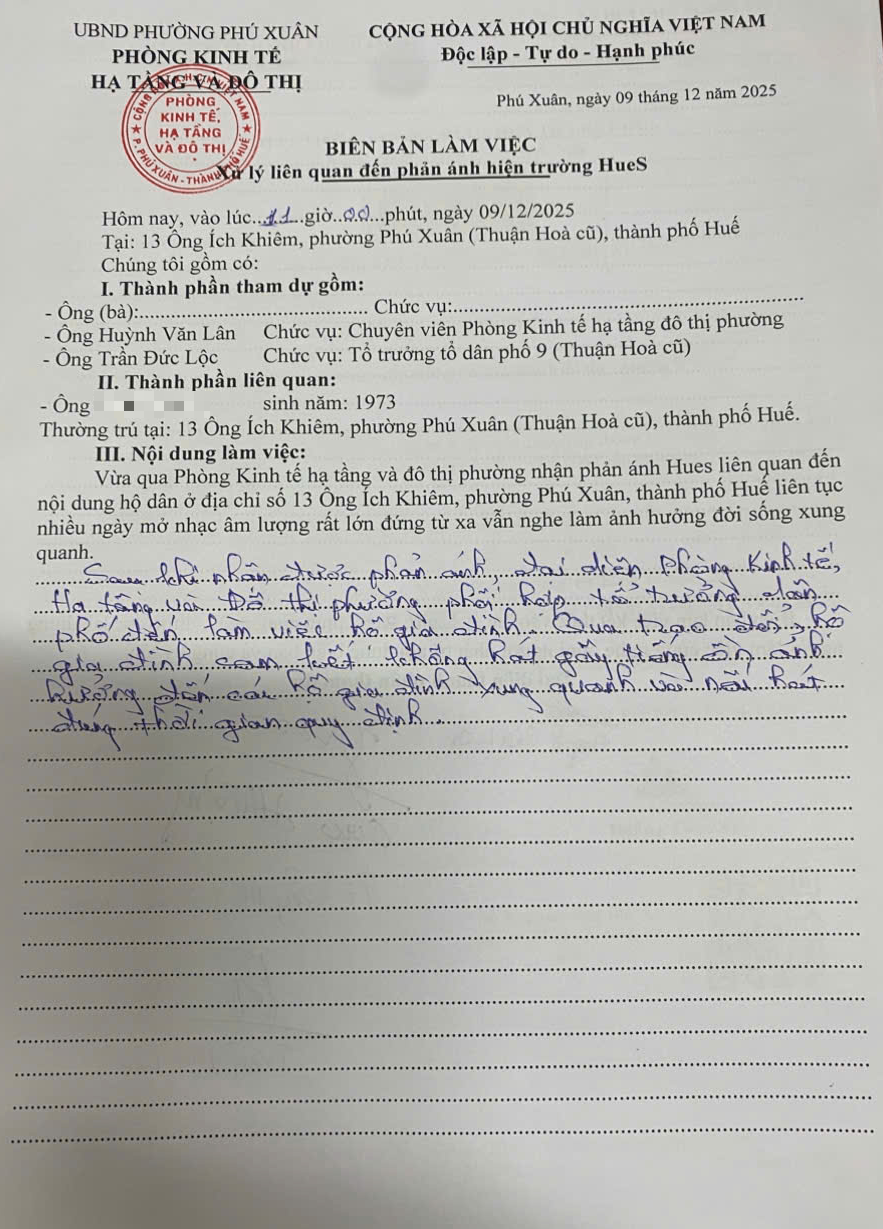 UBND PHƯỜNG PHÚ XUÂN
PHÒNG KINH TẾ
HẠ TẦNG VÀ ĐÔ THỊ
CỘNG HÒA XÃ HỘI CHỦ NGHĨA VIỆT NAM
Độc lập - Tự do - Hạnh phúc
PHÒNG
KINH TẾ,
HẠ TẦNG
VÀ ĐÔ THỊ
Phú Xuân, ngày 09 tháng 12 năm 2025
BIÊN BẢN LÀM VIỆC
Xử lý liên quan đến phản ánh hiện trường HueS
Hôm nay, vào lúc...11...giờ..00...phút, ngày 09/12/2025
Tại: 13 Ông Ích Khiêm, phường Phú Xuân (Thuận Hoà cũ), thành phố Huế
Chúng tôi gồm có:
I. Thành phần tham dự gồm:
- Ông (bà):........ Chức vụ:........
- Ông Huỳnh Văn Lân Chức vụ: Chuyên viên Phòng Kinh tế hạ tầng đô thị phường
- Ông Trần Đức Lộc Chức vụ: Tổ trưởng tổ dân phố 9 (Thuận Hoà cũ)
II. Thành phần liên quan:
- Ông sinh năm: 1973
Thường trú tại: 13 Ông Ích Khiêm, phường Phú Xuân (Thuận Hoà cũ), thành phố Huế.
III. Nội dung làm việc:
Vừa qua Phòng Kinh tế hạ tầng và đô thị phường nhận phản ánh Hues liên quan đến
nội dung hộ dân ở địa chỉ số 13 Ông Ích Khiêm, phường Phú Xuân, thành phố Huế liên tục
nhiều ngày mở nhạc âm lượng rất lớn đứng từ xa vẫn nghe làm ảnh hưởng đời sống xung
quanh.
Sau khi nhận được phản ánh, đại diện Phòng Kinh tế,
Hạ tầng và Đô thị phường phối hợp tổ trưởng dân
phố đến làm việc hộ gia đình. Qua trao đổi, hộ
gia đình cam kết không hát gây tiếng ồn ảnh
hưởng đến các hộ gia đình xung quanh và nếu hát
đúng thời gian quy định.